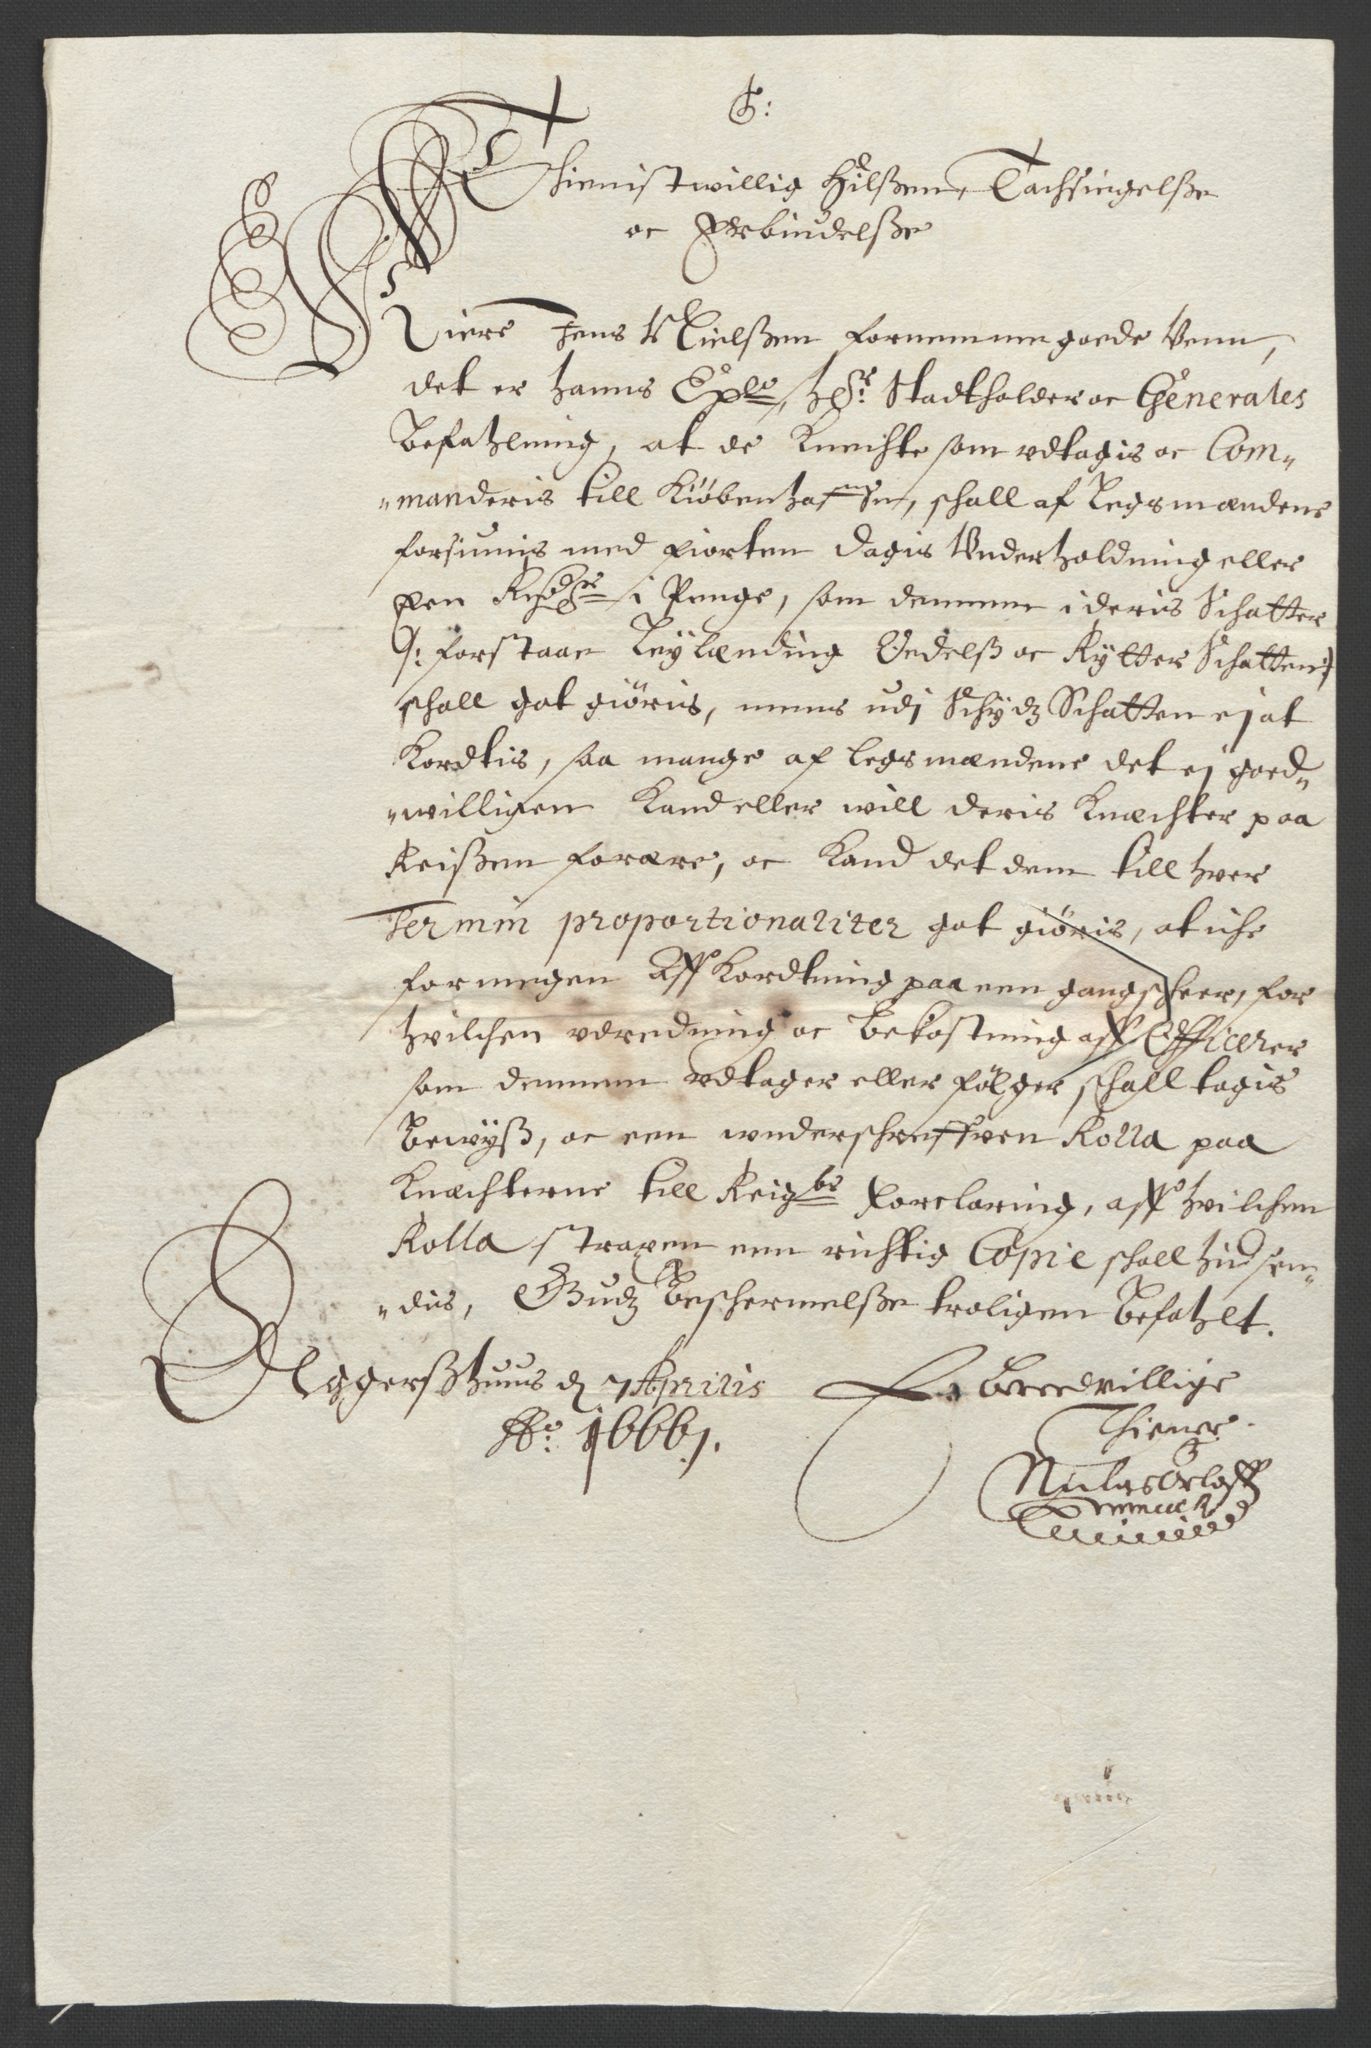 G:
Thienistwillig Hilßen, Tachsigelße
oc Erbindelße
Kiere Jens Nielßen fornemme goede Venn,
det er hanns Exlᵉ, hr: Stadtholder oc Generales
Befahlning, at de Knechte som udtagis oc Com-
manderis till Kiöbenhaffn, schall af Legsmændene
forsiunis med fiorten dagis Underholdning eller
een Rixdlr i Penge, som dennem i deris Schatter
/: forstaae Leylænding Oedelß oc Rytter Schatten :/
schall got giöris, mens udj Schydz Schatten ej at
Kordtis, saa mange af legsmændene det ej goed-
willigen Kand eller will deris Knechter paa
Reißen forære, oc Kand det dem till hver
Termin proportionaliter got giöris, at iche
formegen Aff Kordtning paa een gang scheer, for
hvilchen udredning oc Bekostning aff Officerer
som dennem udtager eller fölger schall tagis
Bewyß, oc een underschreffven Rolla paa
Knechterne till Regnbs forclaring, aff hvilchen
Rolla straxen een richtig Copie schall hid sen-
dis, Gudz Beschermelße troligen Befahlt.
Aggerßhuus d 7 Aprilis
Aᵒ: 1666.
E. Beredvillige
Thiener